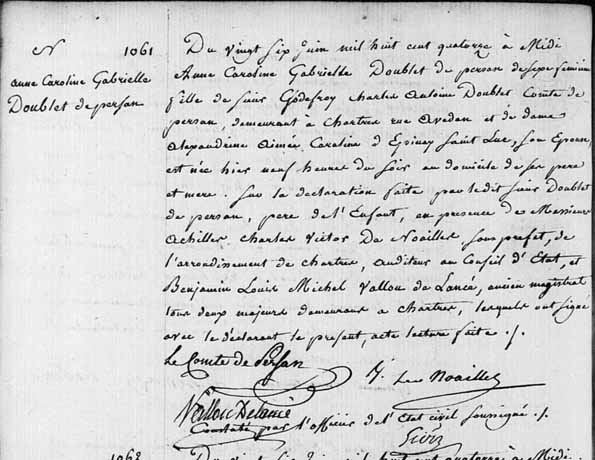 N 1061
Anne Caroline Gabrielle
Doublet de persan
Du vingt six juin mil huit cent quatorze à Midi
Anne Caroline Gabrielle Doublet de persan de sexe féminin
fille de Sieur Godefroy Charles Antoine Doublet Comte de
persan, demeurant à Chartres rue avedan et de dame
alexandrine aimée Caroline d'Epinay Saint Luc, son Epouse,
est née hier neuf heures du Soir au domicile de ses pere
et mere. Sur la déclaration faite par ledit Sieur Doublet
de persan, pere de l'Enfant, en presence de Messieurs
Achilles Charles Victor De Noailles sous prefet, de
l'arrondissement de Chartres, auditeur au Conseil d'Etat, et
Benjamin Louis Michel Vallou de Lancé, ancien magistrat
tous deux majeurs demeurans à Chartres, lesquels ont signé
avec le déclarant le présent, acte lecture faite ./.
Le Comte de Persan
De Noailles
Vallou Delancé
Constaté par l'officier de l'Etat civil soussigné ./.
1062
Du vingt six juin mil huit cent quatorze à Midi